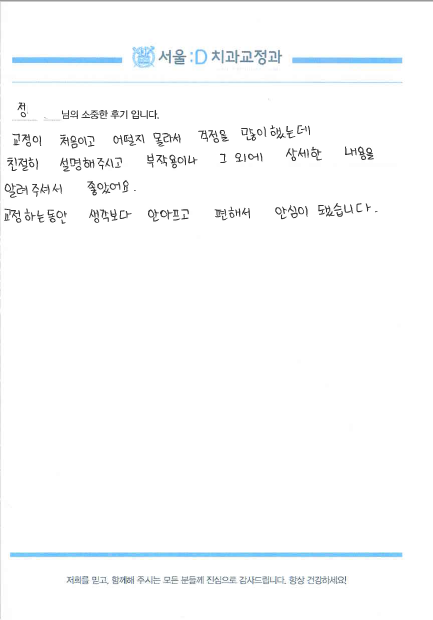 서울:D 치과교정과
정 님의 소중한 후기 입니다.
교정이 처음이고 어떨지 몰라서 걱정을 많이 했는데
친절히 설명해주시고 부작용이나 그 외에 상세한 내용을
알려주셔서 좋았어요.
교정하는동안 생각보다 안아프고 편해서 안심이 됐습니다.
저희를 믿고, 함께해 주시는 모든 분들께 진심으로 감사드립니다. 항상 건강하세요!